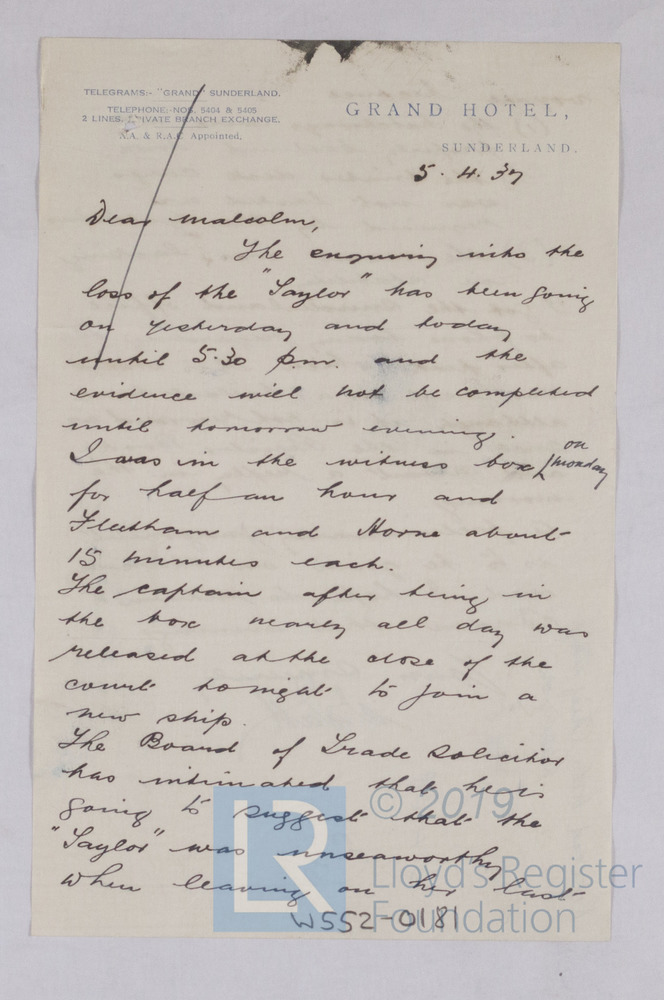 TELEGRAMS:- "GRAND" SUNDERLAND.
TELEPHONE:- NOS. 5404 & 5405
2 LINES. PRIVATE BRANCH EXCHANGE.
A.A. & R.A.C. Appointed.
GRAND HOTEL,
SUNDERLAND.
5. 4. 37
Dear Malcolm,
The enquiry into the
loss of the "Saylor" has been going
on yesterday and today
until 5.30 p.m. and the
evidence will not be completed
until tomorrow evening.
I was in the witness box on Monday
for half an hour and
Flutham and Horne about
15 minutes each.
The captain after being in
the box nearly all day was
released at the close of the
court tonight to join a
new ship.
The Board of Trade Solicitor
has intimated that he is
going to suggest that the
"Saylor" was unseaworthy
when leaving on her last
W552-0181
LR
© 2019
Lloyd's Register
Foundation